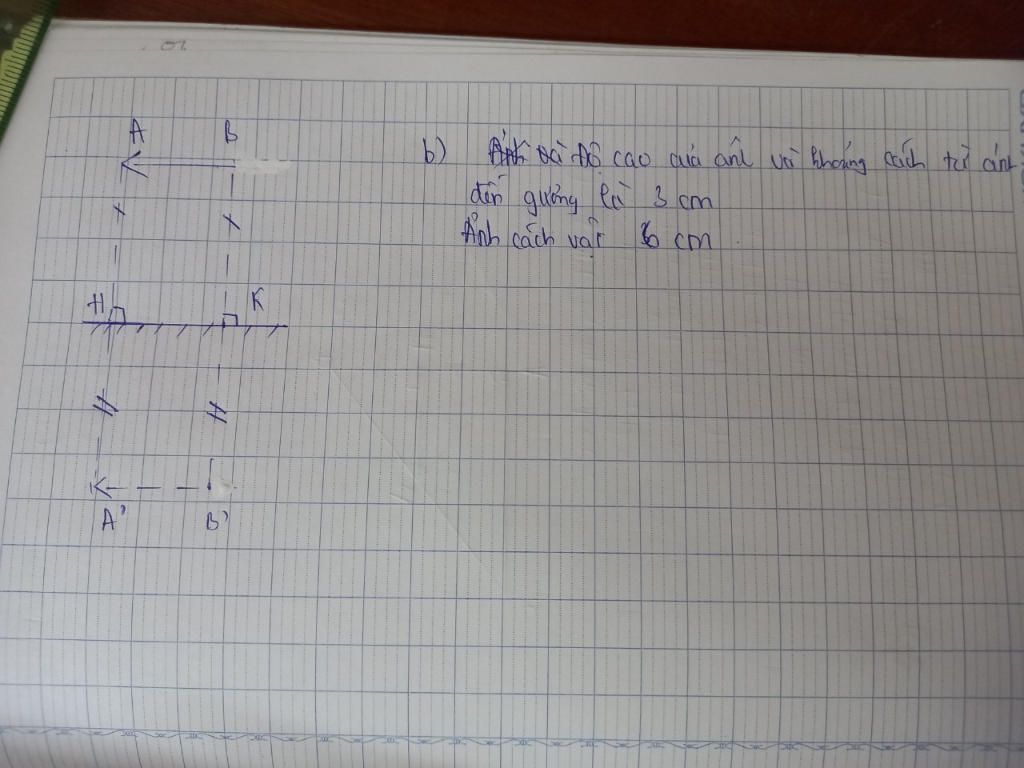 A B
b) Độ cao của ảnh và khoảng cách từ ảnh
đến gương là 3 cm
Ảnh cách vật 6 cm
H K
A' B'